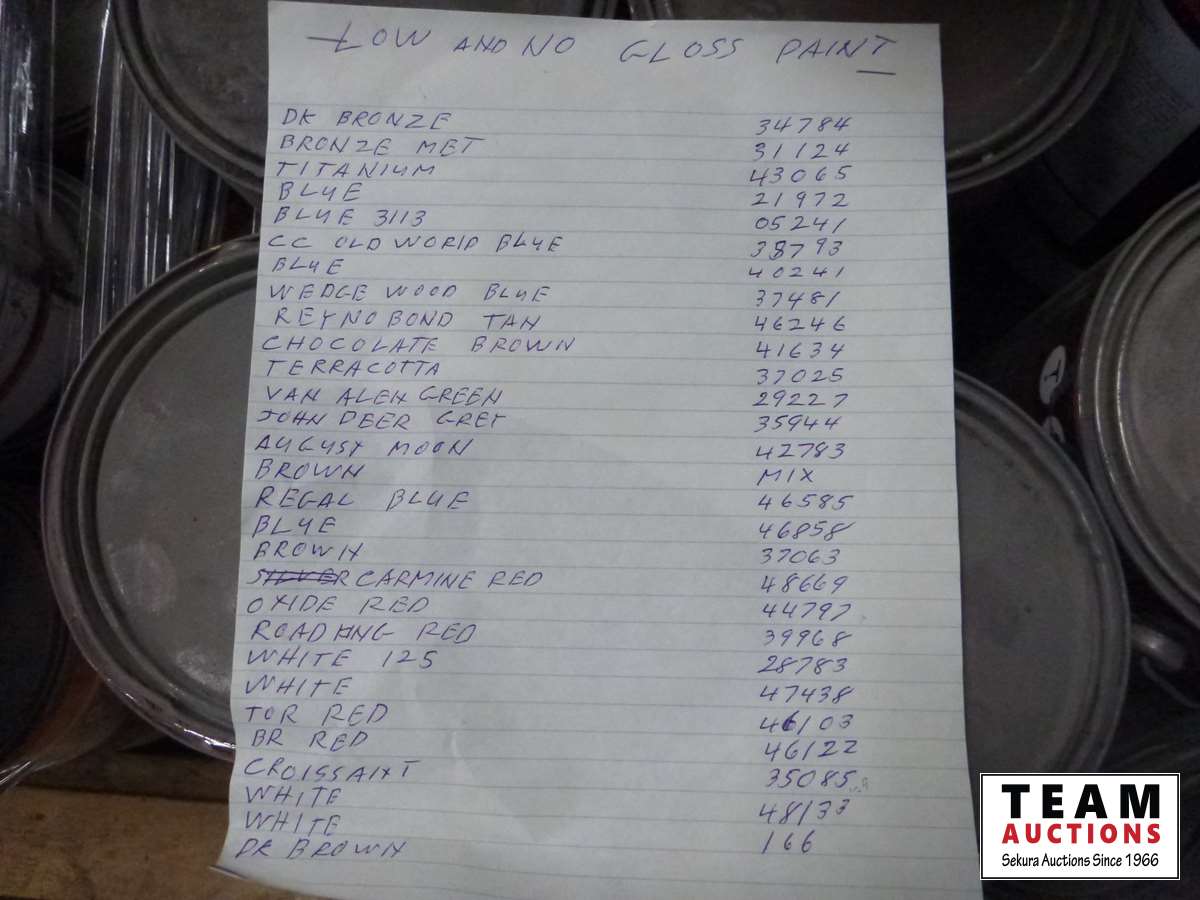 LOW AND NO GLOSS PAINT
DK BRONZE 34784
BRONZE MET 31124
TITANIUM 43065
BLUE 21972
BLUE 3113 05241
CC OLD WORLD BLUE 38793
BLUE 40241
WEDGE WOOD BLUE 37481
REYNOBOND TAN 46246
CHOCOLATE BROWN 41634
TERRACOTTA 37025
VAN ALEN GREEN 29227
JOHN DEER GREY 35944
AUGUST MOON 42783
BROWN MIX
REGAL BLUE 46585
BLUE 46858
BROWN 37063
CARMINE RED 48669
OXIDE RED 44797
RED 39968
WHITE 125 28783
WHITE 47438
TOR RED 46103
BR RED 46122
CROISSANT 35085
WHITE 48133
WHITE 166
DK BROWN
TEAM
AUCTIONS
Sekura Auctions Since 1966